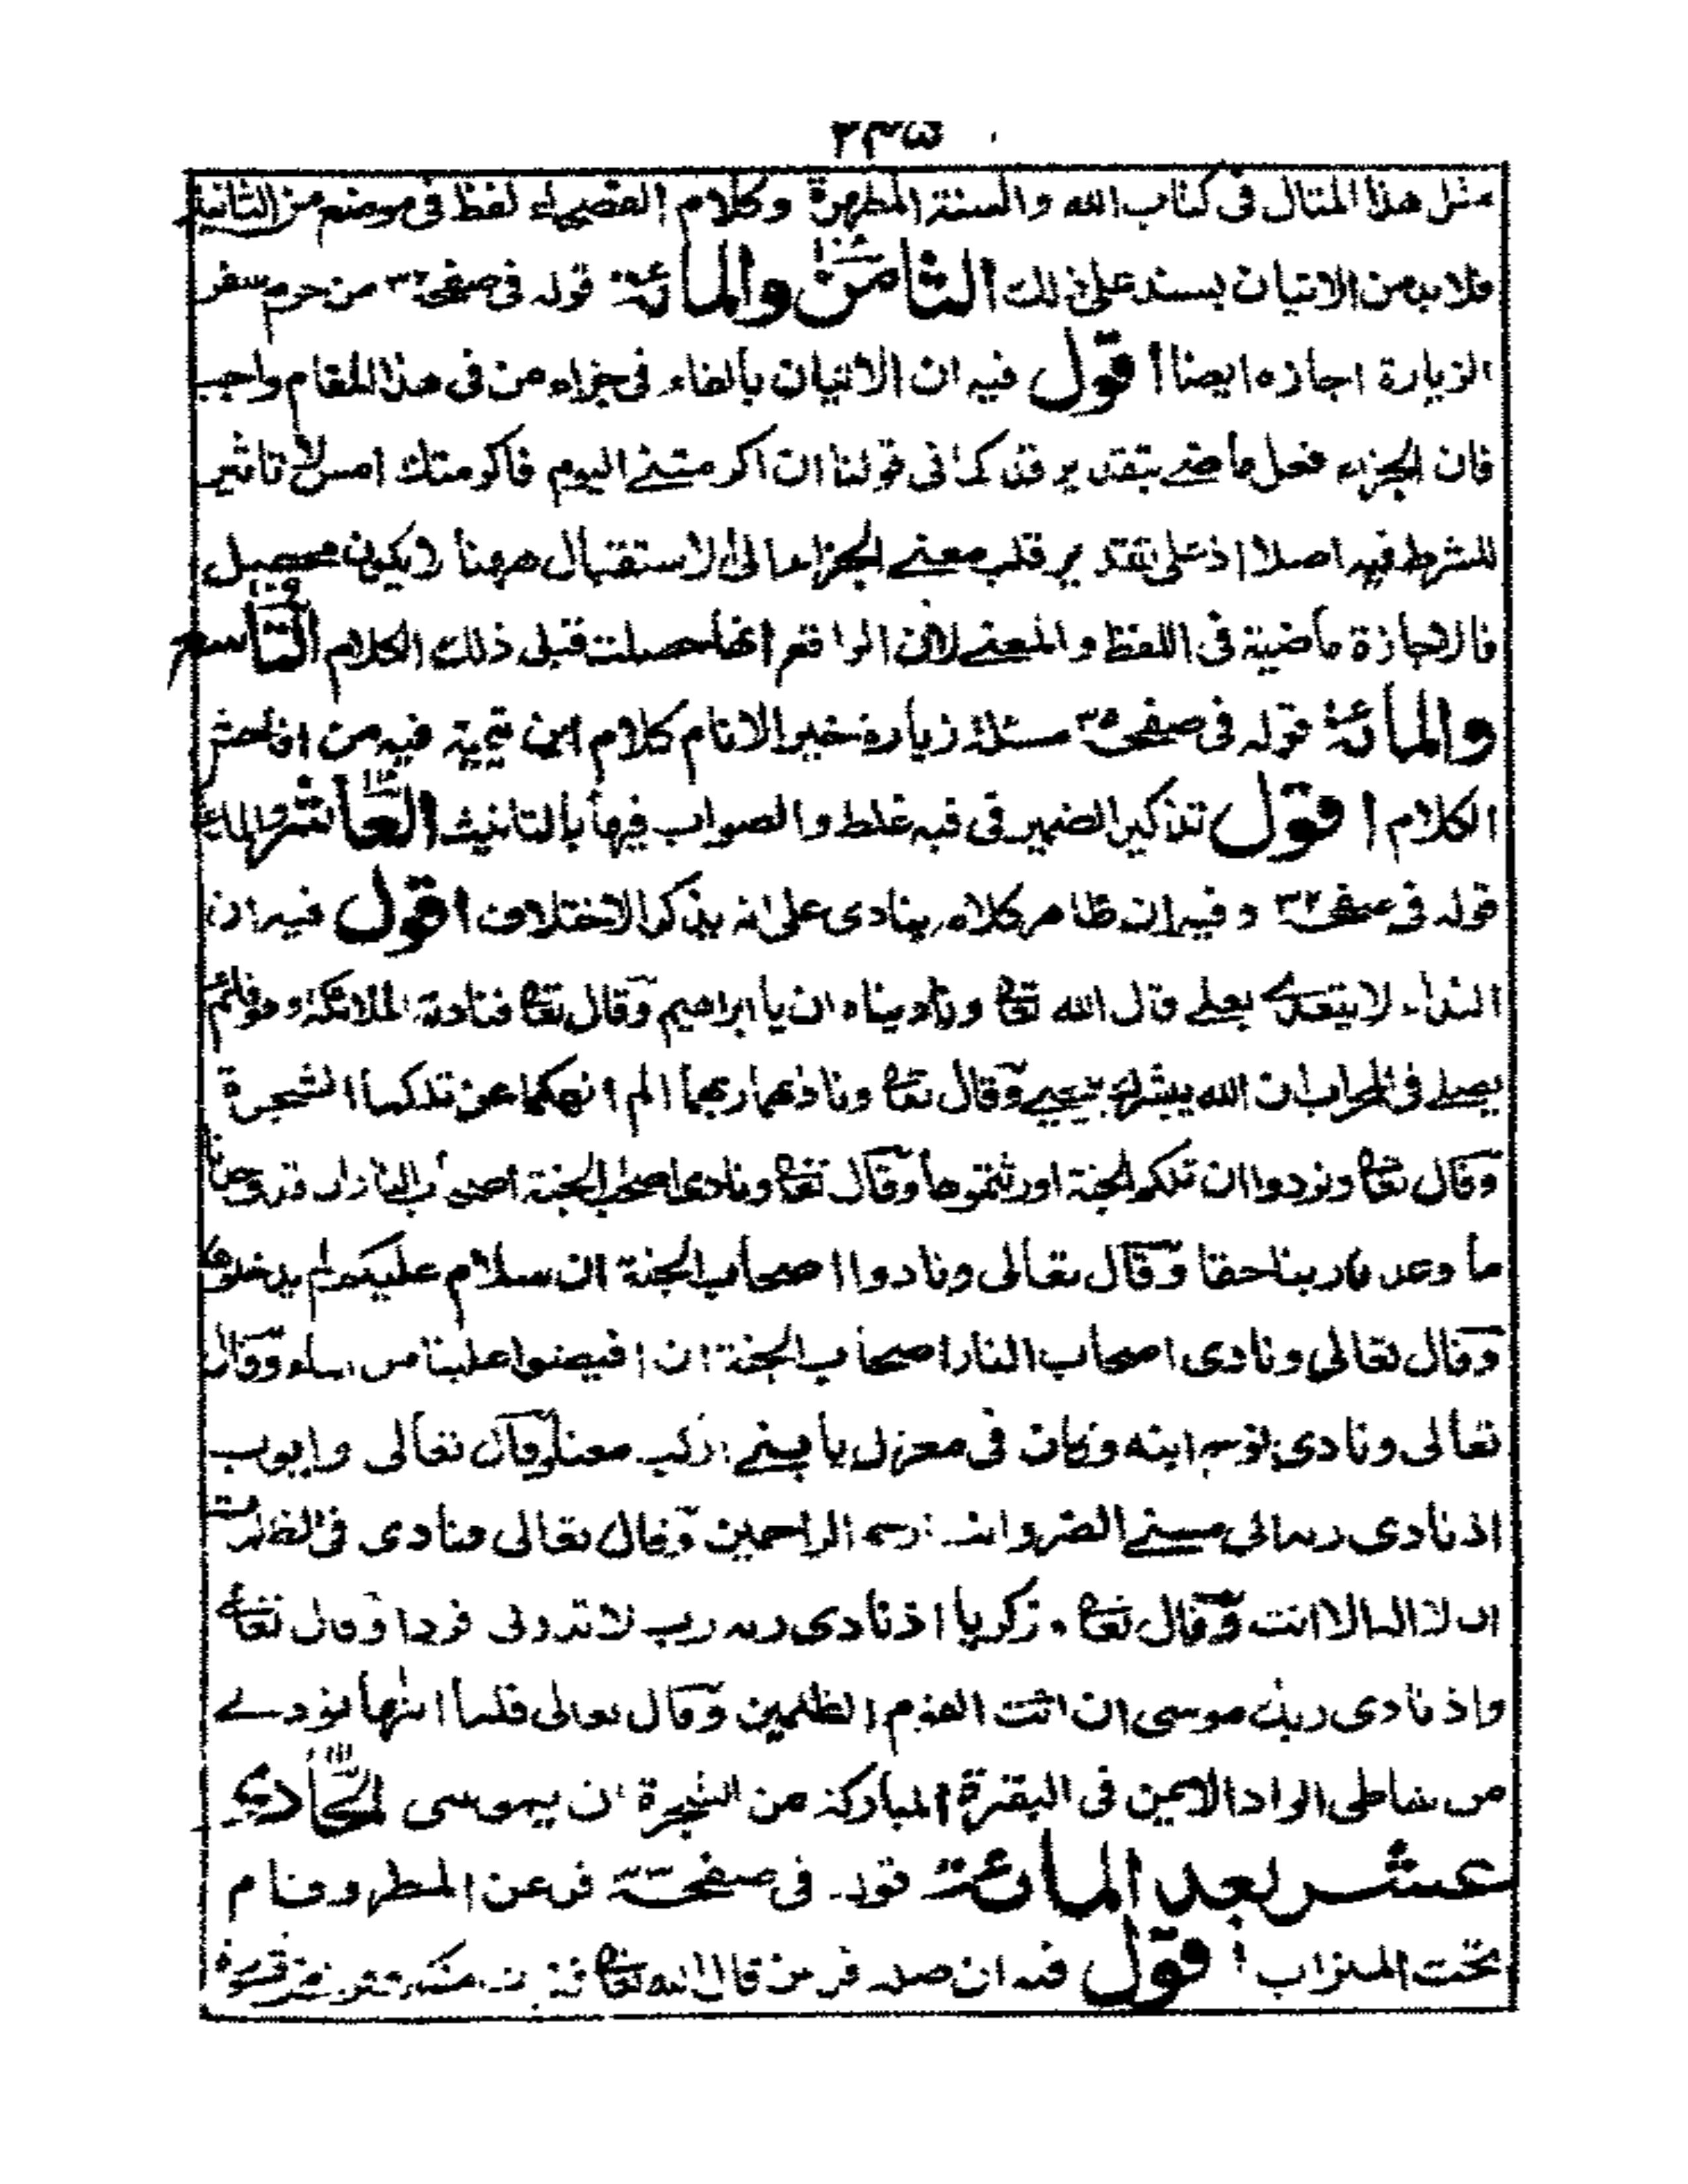 ۲۳۵
مثل هذا المثال فى كتاب الله والسنة المطهرة وكلام الفصحاء لفظ فى موضع من الثانية
فلابد من الاتيان بسند على ذلك الثامن والمائة قوله فى صفحة من حرم سفر
الزيارة اجازه ايضا اقول فيه ان الاتيان بالفاء فى جزاء من فى هذا المقام واجب
فان الجزاء فعل ماض بتقدير قد كما فى قولنا ان اكرمتنى اليوم فاكرمتك امس لا تاثير
للشرط فيه اصلا اذ على تقدير قلب معنى الجزاء الى الاستقبال ههنا لا يكون محصل
فالاجازة ماضية فى اللفظ والمعنى لان الواقع انها حصلت قبل ذلك الكلام التاسع
والمائة قوله فى صفحة مسئلة زيارة خير الانام كلام ابن تيمية فيه من افاحش
الكلام اقول تذكير الضمير فى فيه غلط والصواب فيها بالتانيث العاشر والمائة
قوله فى صفحة ۳۲ وفيه ان ظاهر كلامه ينادى على انه يذكر الاختلاف اقول فيه ان
النداء لا يتعدى بعلى قال الله تعا وناديناه ان يا ابراهيم وقال تعا فنادته الملائكة وهو قائم
يصلى فى المحراب ان الله يبشرك بيحيى وقال تعا وناداهما ربهما الم انهكما عن تلكما الشجرة
وقال تعا ونودوا ان تلكم الجنة اورثتموها وقال تعا ونادى اصحب الجنة اصحاب النار ان قد وجدنا
ما وعدنا ربنا حقا وقال تعالى ونادوا اصحاب الجنة ان سلام عليكم لم يدخلوها
وقال تعالى ونادى اصحاب النار اصحاب الجنة ان افيضوا علينا من الماء وقال
تعالى ونادى نوح ابنه وكان فى معزل يا بنى اركب معنا وقال تعالى وايوب
اذ نادى ربه انى مسنى الضر وانت ارحم الراحمين وقال تعالى فنادى فى الظلمت
ان لا اله الا انت وقال تعا وزكريا اذ نادى ربه رب لا تذرنى فردا وقال تعا
واذ نادى ربك موسى ان ائت القوم الظلمين وقال تعالى فلما اتها نودے
من شاطى الواد الايمن فى البقعة المباركة من الشجرة ان يموسى الحادى
عشر بعد المائة قوله فى صفحة فر عن المطر وقام
تحت الميزاب اقول فيه ان صلة فر من قال الله تعا